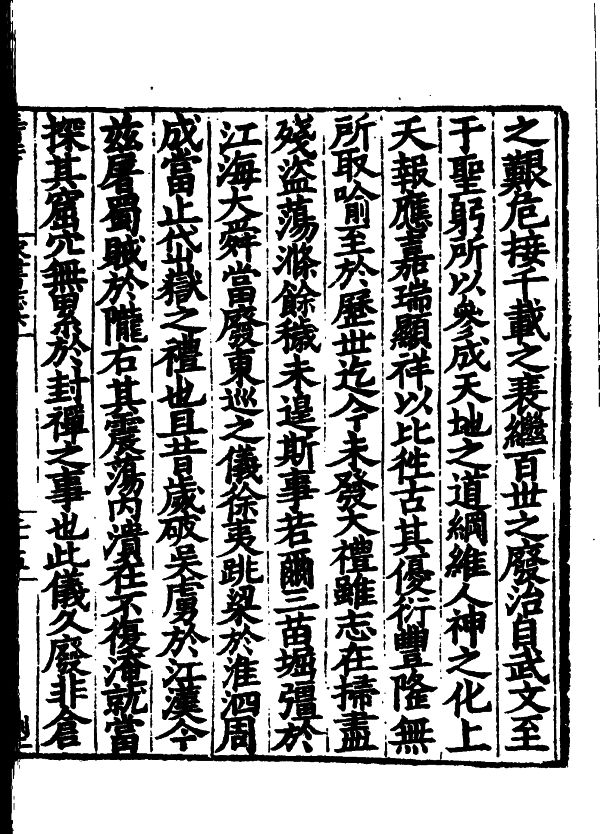 之艱危接千載之衰繼百世之廢治自武文至
于聖躬所以參成天地之道綱維人神之化上
天報應嘉瑞顯祥以比徃古其優衍豐隆無
所取喻至於歷世迄今未發大禮雖志在掃盡
殘盜蕩滌餘穢未遑斯事若爾三苗堀彊於
江海大舜當廢東巡之儀徐夷跳梁於淮泗周
成當止岱嶽之禮也且昔歲破吳虜於江漢今
兹屠蜀賊於隴右其震蕩内潰在不復淹就當
探其窟穴無累於封禪之事也此儀久廢非倉